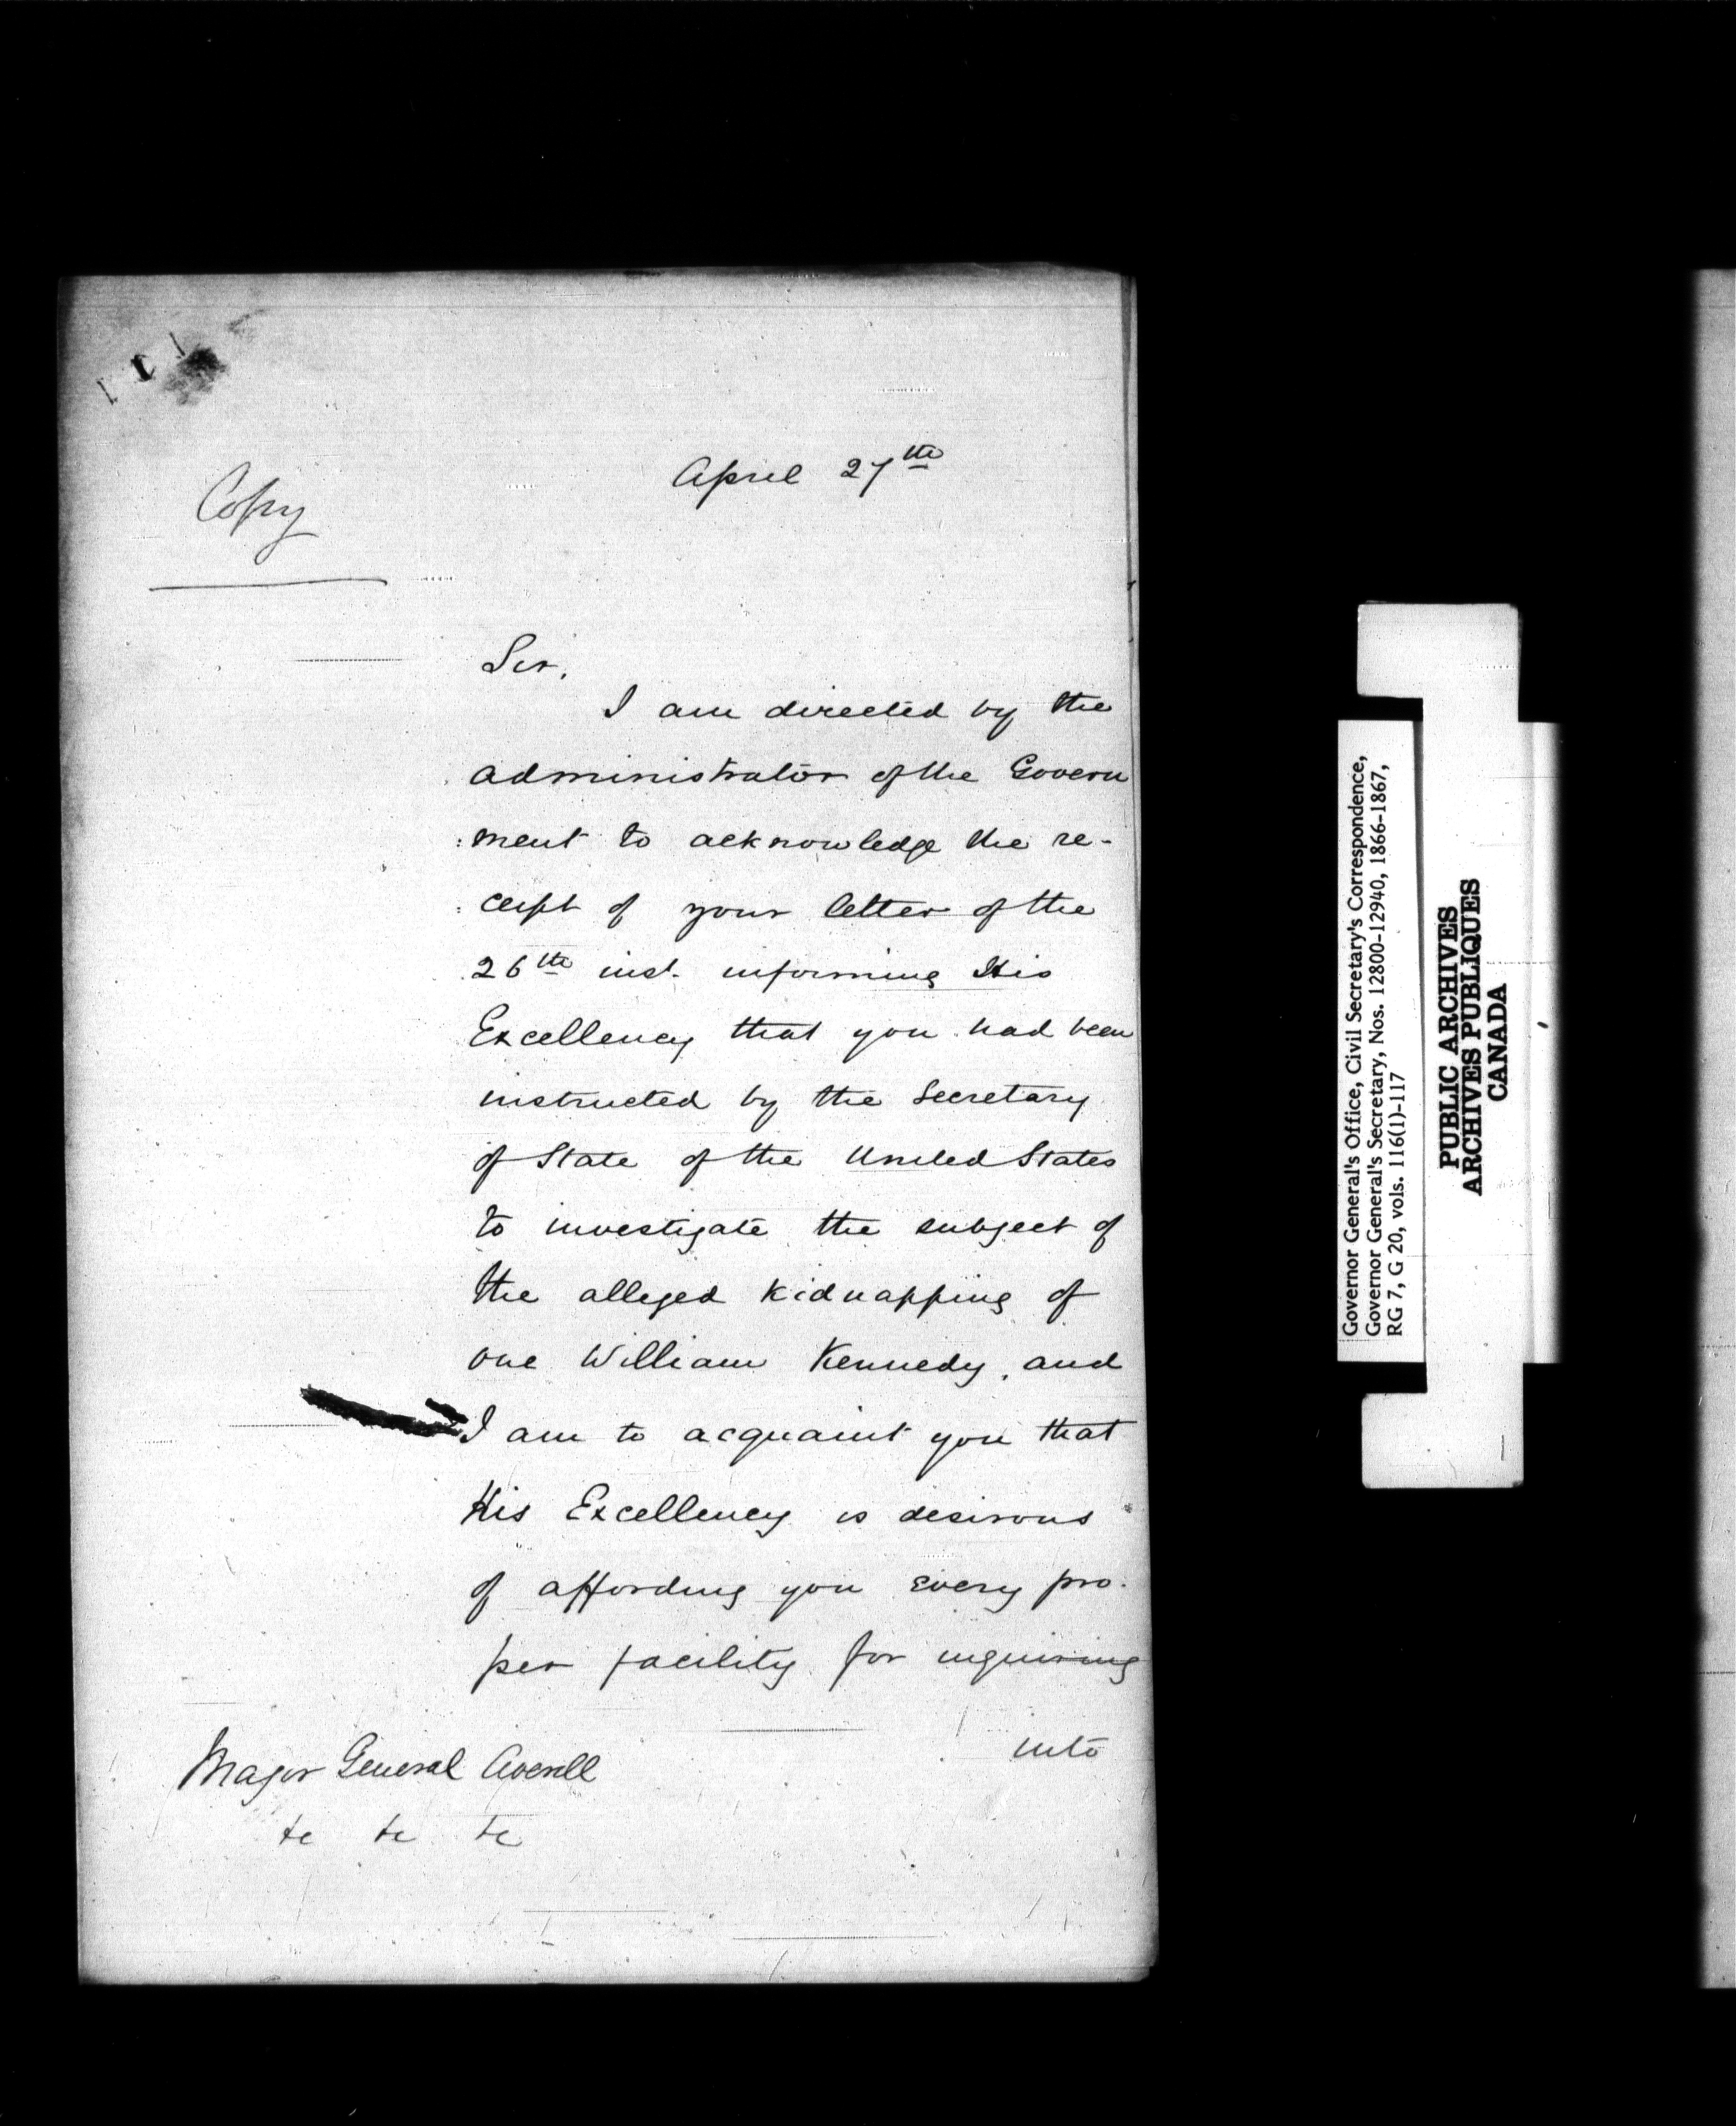 Copy
April 27th
Sir,
I am directed by the
administrator of the Govern
:ment to acknowledge the re-
:ceipt of your letter of the
26th inst. informing His
Excellency that you had been
instructed by the Secretary
of State of the United States
to investigate the subject of
the alleged kidnapping of
one William Kennedy, and
I am to acquaint you that
His Excellency is desirous
of affording you every pro-
per facility for inquiring
into
Major General Averell
&c &c &c
Governor General's Office, Civil Secretary's Correspondence,
Governor General's Secretary, Nos. 12800-12940, 1866-1867,
RG 7, G 20, vols. 116(1)-117
PUBLIC ARCHIVES
ARCHIVES PUBLIQUES
CANADA